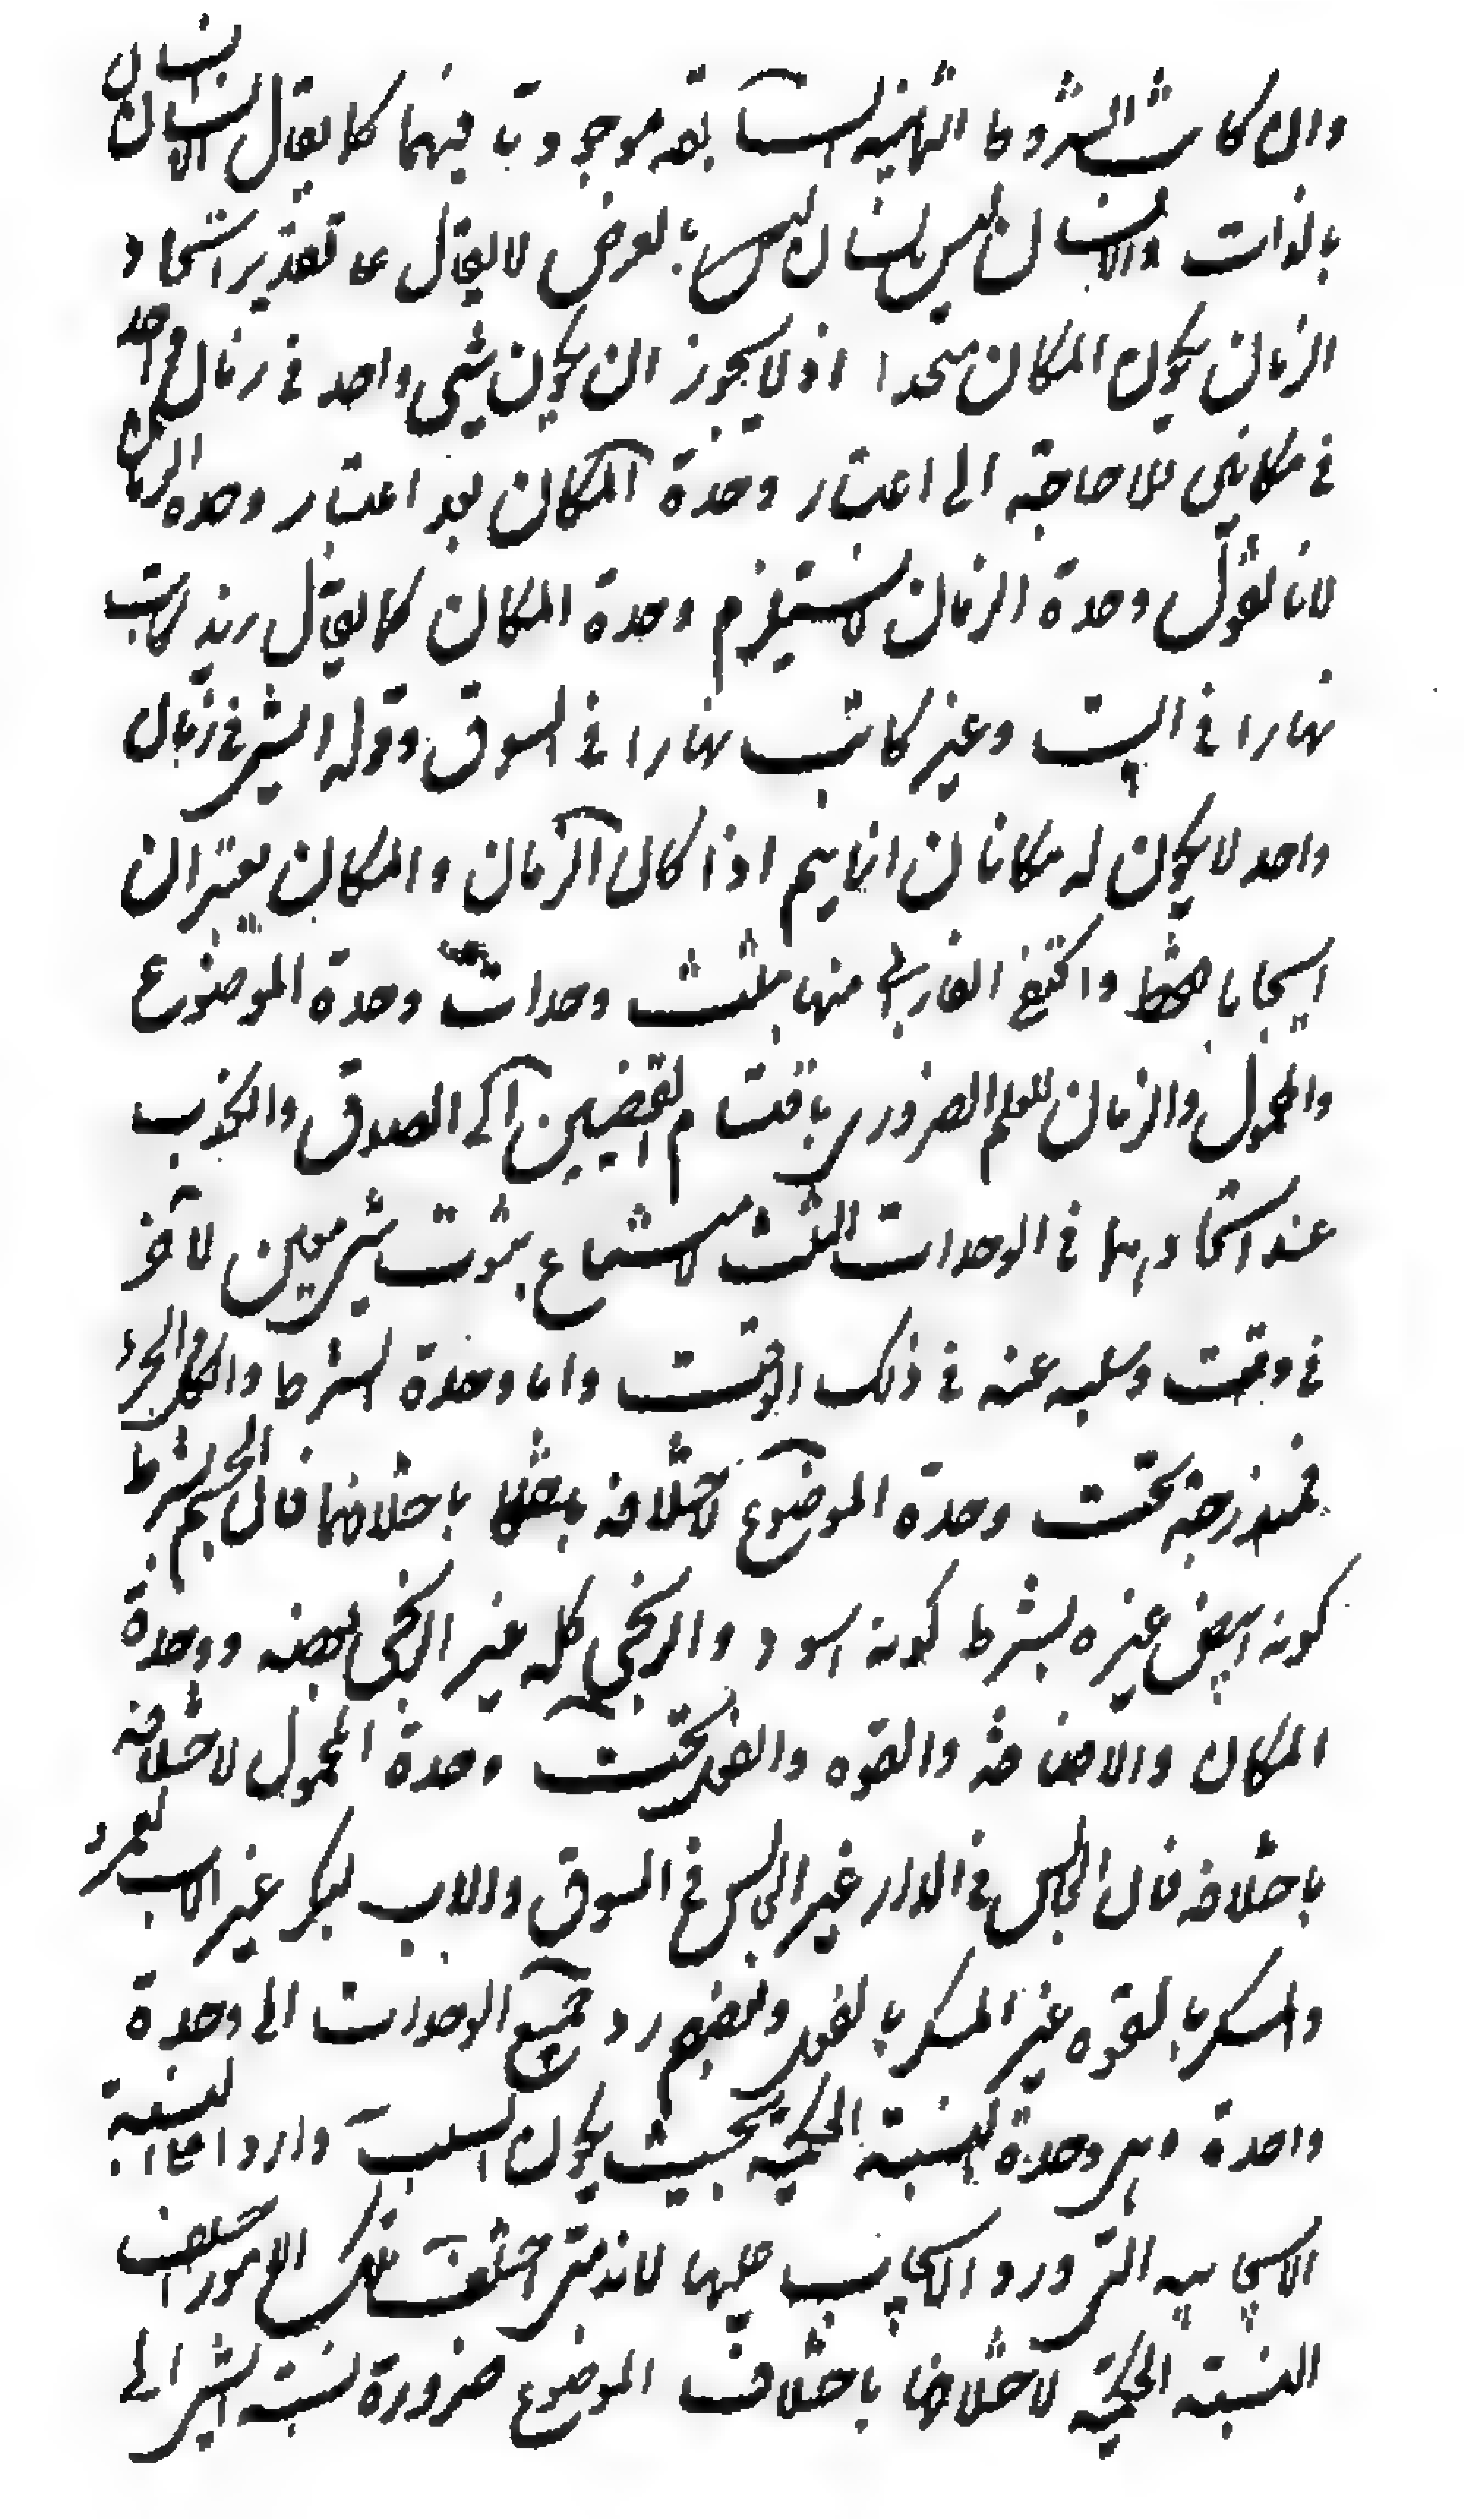 وان كانت الشروط الثمانية السابقة موجودة فيهما كما يقال الانسان انسان
بالذات والانسان ليس بانسان ليس بالعرض لا يقال على تقدير اتحاد
الزمان يكون المكان متحدا اذ لا يجوز ان يكون شيء واحد في زمان واحد
في مكانين فلا حاجة الى اعتبار وحدة المكان بعد اعتبار وحدة الزمان
لانا نقول وحدة الزمان لا تستلزم وحدة المكان كما يقال زيد كاتب
نهارا في البيت وغير كاتب نهارا في السوق وقوله الشيء في زمان
واحد لا يكون له مكانان انما يتم اذا كان الزمان والمكان يعتبران
واكتفى الفارابي منها بثلث وحدات وحدة الموضوع
والمحمول والزمان للعلم الضروري باقتسام القضيتين الصدق والكذب
عند اتحادهما في الوحدات الثلث لامتناع ثبوت شيء معين لآخر
في وقت وسلبه عنه في ذلك الوقت واما وحدة الشرط والكل والجزء
فمندرجة تحت وحدة الموضوع لاختلافه باختلافهما فان الجسم بشرط
كونه ابيض غيره بشرط كونه اسود والزنجي كله غير الزنجي بعضه ووحدة
المكان والاضافة والقوة والفعل تحت وحدة المحمول لاختلافه
باختلافه فان الجالس في الدار غير الجالس في السوق والاب لبكر غير الاب لعمرو
والمسكر بالقوة غير المسكر بالفعل وبعضهم رد جميع الوحدات الى وحدة
واحدة وهي وحدة النسبة الحكمية بحيث يكون السلب واردا على النسبة
الايجابية التي ورد الايجاب عليها لانه متى اختلف تلك الامور اختلف
النسبة الحكمية لاختلافها باختلاف الموضوع ضرورة نسبة الشيء الى